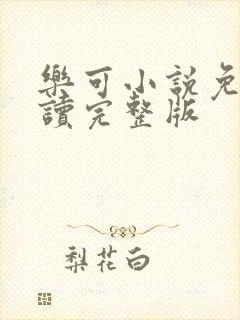 樂可小說免
讀完整版
梨花白